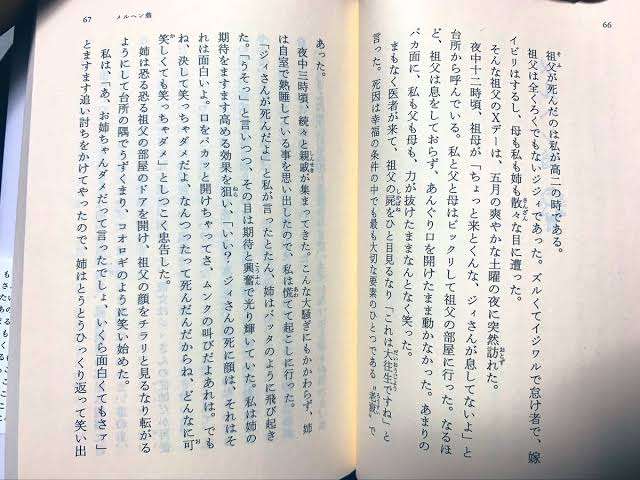 66
祖父が死んだのは私が高二の時である。
祖父は全くろくでもないジジィであった。ズルくてイジワルで怠け者で、嫁
イビリはするし、母も私も姉も散々な目に遭った。
そんな祖父のXデーは、五月の爽やかな土曜の夜に突然訪れた。
夜中十二時頃、祖母が「ちょっと来とくんな、ジィさんが息してないよ」と
台所から呼んでいる。私と父と母はビックリして祖父の部屋に行った。なるほ
ど、祖父は息をしておらず、あんぐり口を開けたまま動かなかった。あまりの
バカ面に、私も父も母も、力が抜けたままなんとなく笑った。
まもなく医者が来て、祖父の屍をひと目見るなり「これは大往生ですね」と
言った。死因は幸福の条件の中でも最も大切な要素のひとつである〝老衰〟で
67 メルヘン翁
あった。
夜中三時頃、続々と親戚が集まってきた。こんな大騒ぎにもかかわらず、姉
は自室で熟睡している事を思い出したので、私は慌てて起こしに行った。
「ジィさんが死んだよ」と私が言ったとたん、姉はバッタのように飛び起き
た。「うそっ」と言いつつ、その目は期待と興奮で光り輝いていた。私は姉の
期待をますます高める効果を狙い、「いい?ジィさんの死に顔は、それはそ
れは面白いよ。口をパカッと開けちゃってさ、ムンクの叫びだよあれは。でも
ね、決して笑っちゃダメだよ、なんつったって死んだんだからね、どんなに可
笑しくても笑っちゃダメ」としつこく忠告した。
姉は恐る恐る祖父の部屋のドアを開け、祖父の顔をチラリと見るなり転がる
ようにして台所の隅でうずくまり、コオロギのように笑い始めた。
私は、「あ、お姉ちゃんダメだって言ったでしょ、いくら面白くてもさァ」
とますます追い討ちをかけてやったので、姉はとうとうひっくり返って笑い出